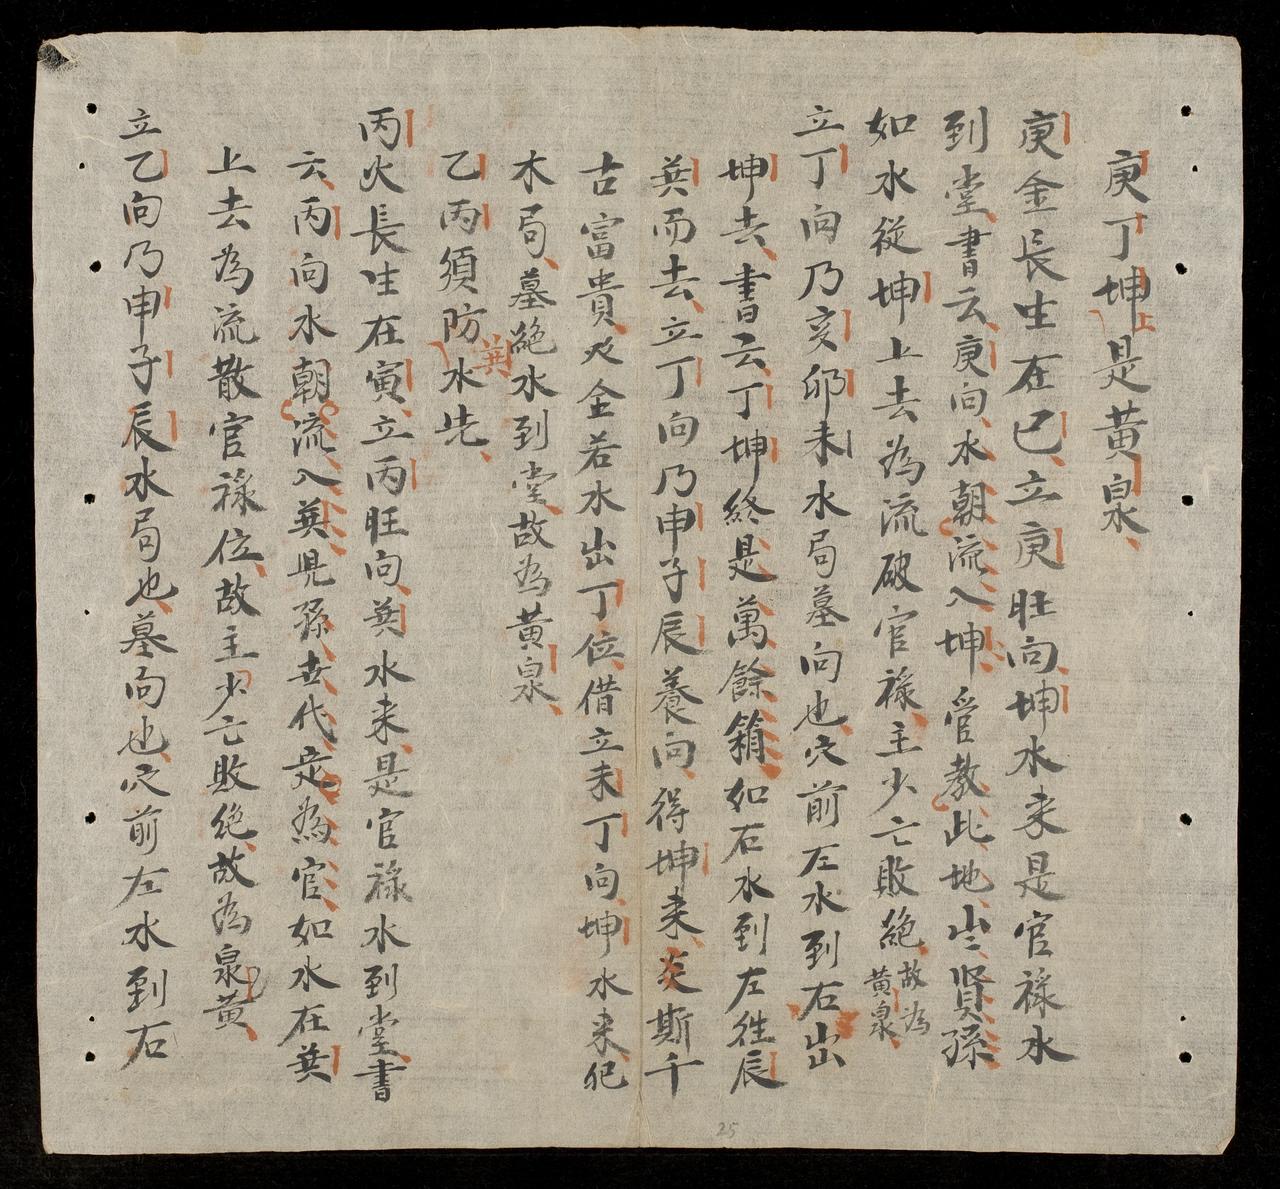 庚丁坤上是黃泉
庚金長生在巳立庚旺向坤水来是官祿水
到堂書云庚向水朝流入坤管教此地出賢孫
如水從坤上去為流破官祿主少亡敗絕故為黃泉
立丁向乃亥卯未水局墓向也穴前左水到右出
坤去書云丁坤終是萬餘箱如右水到左徃辰
巽而去立丁向乃申子辰養向得坤来炎斯千
古富貴双全若水出丁位借立未丁向坤水来犯
木局墓絕水到堂故為黃泉
乙丙須防巽水先
丙火長生在寅立丙旺向巽水来是官祿水到堂書
云丙向水朝流入巽児孫世代定為官如水在巽
上去為流散官祿位故主少亡敗絕故為泉黃
立乙向乃申子辰水局也墓向也穴前左水到右
25